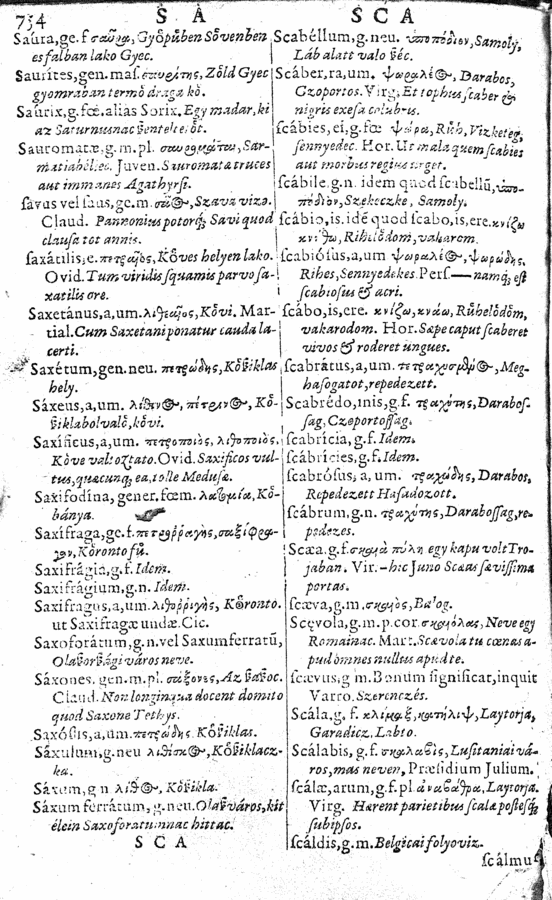 754 S A S C A
Saúra, ge. f. σαῦρα, Gyöpűben Sövenben
es falban lako Gyec.
Saurítes, gen. mas. σαυρίτης, Zöld Gyec
gyomraban termö draga kö.
Saúrix, g. fœ. alias Sorix. Egy madar, ki
az Saturnusnac
Sauromatæ, g. m. pl. Sar-
matiabéliec. Juven. Sauromata truces
aut immanes Agathyrsi.
savus vel saus, ge. m. Szava vize.
Claud. Pannonius potorq́; Savi quod
clausa tot annis.
saxátilis, e. πετραῖος, Köves helyen lako.
Ovid. Tum viridis squamis parvo sa-
xatilis ore.
Saxetánus, a, um. λιθεαῖος, Kövi. Mar-
tial. Cum Saxetani ponatur cauda la-
certi.
Saxétum, gen. neu. πετρώδης, Kösziklas
hely.
Sáxeus, a, um. λίθινος, πέτρινος, Kö-
sziklabol valo, kövi.
Saxíficus, a, um. πετροποιὸς, λιθοποιὸς,
Köve valtoztato. Ovid. Saxificos vul-
tus, quæcunq; ea, tolle Medusæ.
Saxifodína, gener. fœm. λατομία, Kö-
bánya.
Saxífraga, ge. f. πετροῤῥαγὴς, σαξίφρα-
γον, Körontofű.
Saxifrágia, g. f. Idem.
Saxifrágium, g. n. Idem.
Saxifragus, a, um. λιθοῤῥιγὴς, Köronto.
ut Saxifragæ undæ. Cic.
Saxoforátum, g. n. vel Saxumferratū,
Olaszorszagi város neve.
Sáxones, gen. m. pl. σάξονες, Az szaszoc.
Claud. Non longinqua docent domito
quod Saxone Tethys.
Saxósus, a, um. πετρώδης. Kösziklas.
Sáxulum, g. neu Kösziklacz-
ka.
Sáxum, g. n λίθος, Köszikla.
Sáxum ferrátum, g. neu. Olasz város, kit
élein Saxoforatumnac hittac.
S C A
Scabéllum, g. neu. ὑποπόδιον, Samoly,
Láb alatt valo széc.
Scáber, ra, um. ψωραλέος, Darabos,
Czoportos. Virg. Et tophus scaber &
nigris exesa colubris.
scábies, ei, g. fœ ψώρα, Rűh, Vizketeg,
sennyedec. Hor. Ut mala quem scabies
aut morbus regius urget.
scábile, g. n. idem quod scabellū, ὑπο-
πόδιον, Szekeczke, Samoly.
scábio, is. idē quod scabo, is, ere. κνίζω
κνίθω, Rűhelödöm, vakarom.
scabiósus, a, um ψωραλέος, ψωρώδης,
Rűhes, Sennyedekes. Pers— namq; est
scabiosus & acri.
scábo, is, ere. κνίζω, κνάω, Rűhelödöm,
vakarodom. Hor. Sæpe caput scaberet
vivos & roderet ungues.
scabrátus, a, um. Meg-
hasogatot, repedezett.
Scabrédo, inis, g. f. τραχύτης, Darabos-
sag, Czeportossag.
scabrícia, g. f. Idem.
scabrícies, g. f. Idem.
scabrósus, a, um. τραχώδης, Darabos,
Repedezett Hasadozott.
scábrum, g. n. τραχύτης, Darabossag, re-
pedezes.
Scæa. g. f. σκαιὰ πύλη egy kapu volt Tro-
jaban. Vir.—hic Juno Scæas sævissima
portas.
scæva, g. m. σκαιὸς, Balog.
Scęvola, g. m. p. cor. σκαιόλας, Neve egy
Romainac. Mart. Scævola tu cœnas a-
pud omnes nullus apud te.
scævus, g m. Bonum significat, inquit
Varro. Szerenczés.
Scála, g, f. κλίμαξ, κατήλιψ, Laytorja,
Garadicz, Labto.
Scálabis, g. f. σκαλαβὶς, Lusitaniai vá-
ros, mas neven, Præsidium Julium.
scálæ, arum, g. f. pl ἀναβάθρα, Laytorja.
Virg. Hærent parietibus scalæ postesq́;
sub ipsos.
scáldis, g. m. Belgicai folyoviz.
scálmus